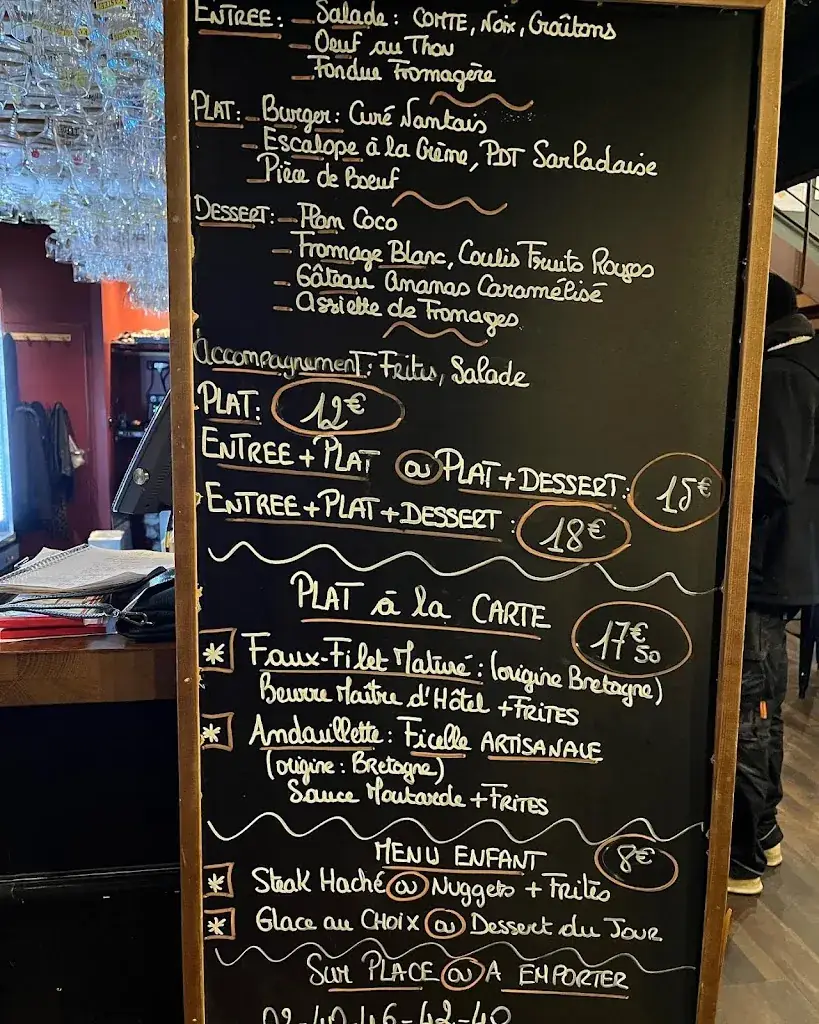 ENTREE: - Salade: COMTE, Noix, Croûtons
- Oeuf au Thon
- Fondue Fromagère
PLAT: - Burger: Curé Nantais
- Escalope à la Crème, PDT Sarladaise
- Pièce de Boeuf
DESSERT: - Flan Coco
- Fromage Blanc, Coulis Fruits Rouges
- Gâteau Ananas Caramélisé
- Assiette de Fromages
Accompagnement: Frites, Salade
PLAT: 12€
ENTREE + PLAT ou PLAT + DESSERT: 15€
ENTREE + PLAT + DESSERT: 18€
PLAT à la CARTE 17€50
* Faux-Filet Maturé: (origine Bretagne)
Beurre Maître d'Hôtel + FRITES
* Andouillette: Ficelle ARTISANALE
(origine: Bretagne)
Sauce Moutarde + FRITES
MENU ENFANT 8€
* Steak Haché ou Nuggets + Frites
* Glace au CHOIX ou Dessert du JOUR
Sur PLACE ou A EMPORTER
02-40-46-42-40